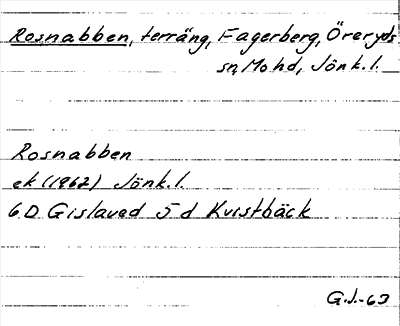 Rosnabben, terräng, Fagerberg, Öreryds
sn, Mohd, Jönk.l.
Rosnabben
ek (1962) Jönk.l.
6D Gislaved 5d Kvistbäck
G.J.-63